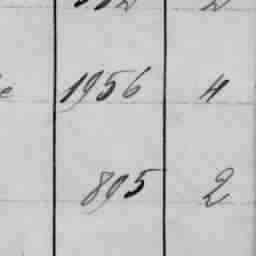 1956 4
895 2